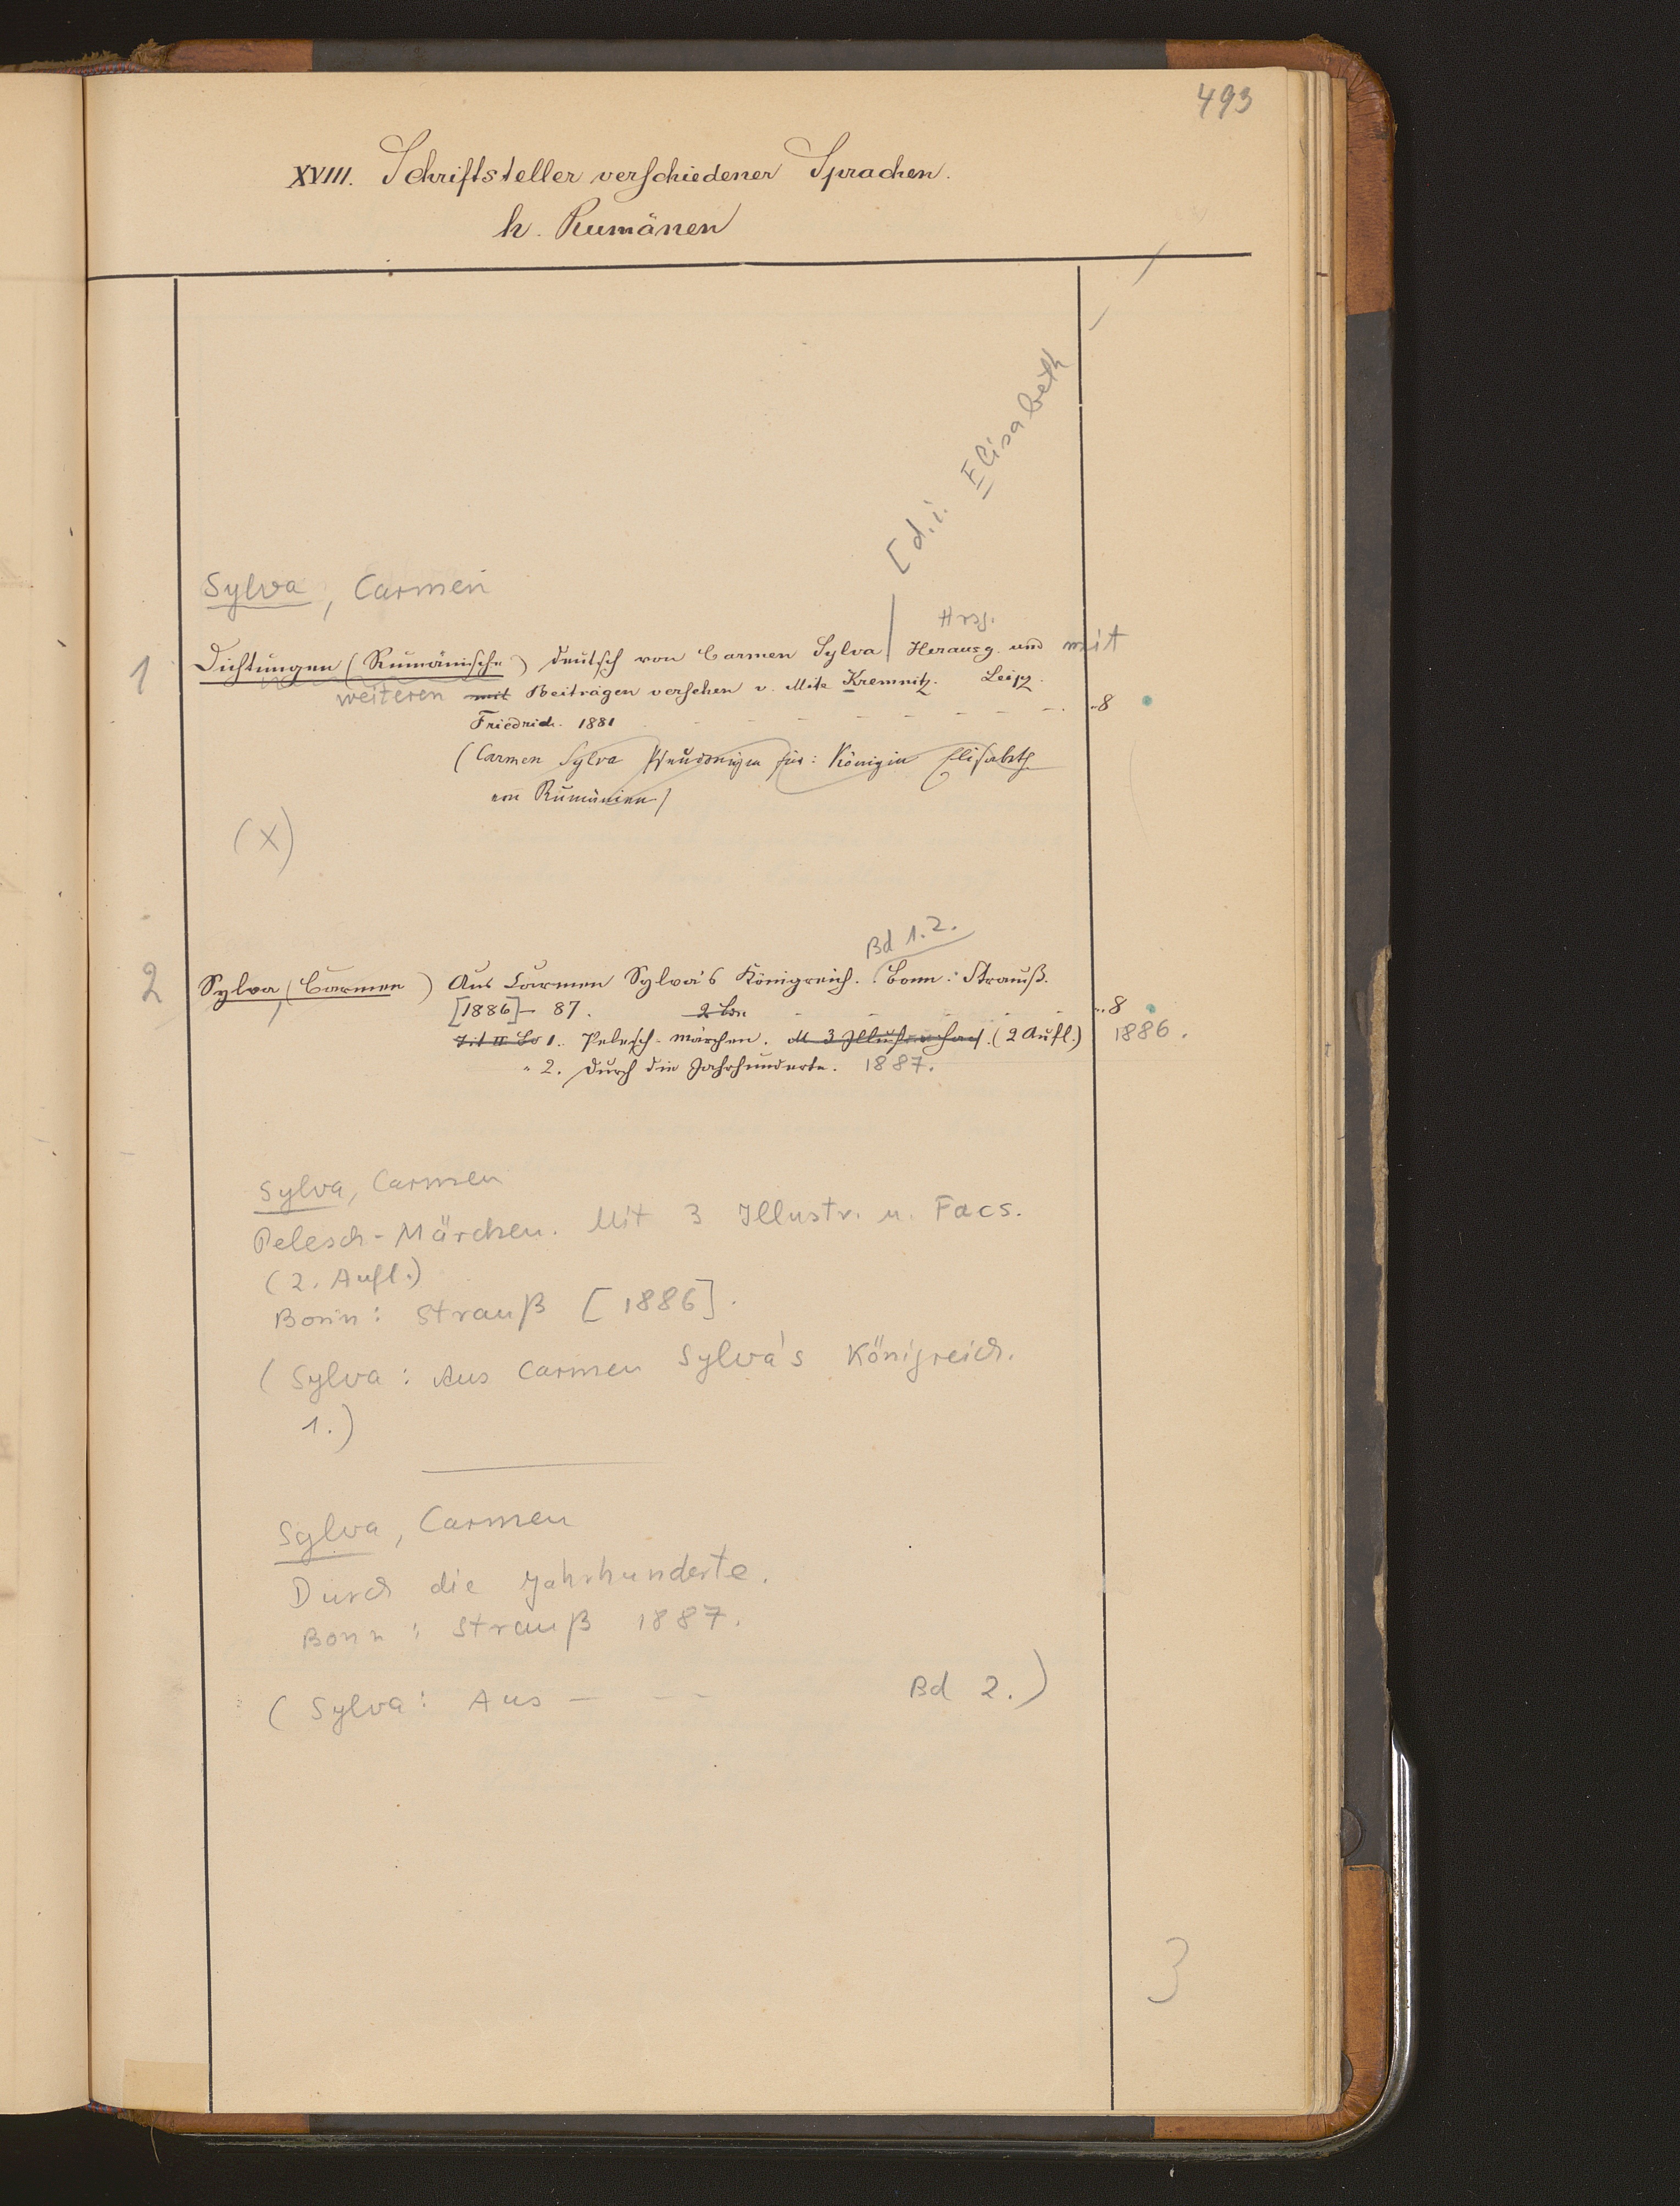 493
XVIII. Schriftsteller verschiedener Sprachen.
h. Rumänen
[d.i. Elisabeth
Sylva, Carmen
Hrsg.
1 Dichtungen (Rumänische) deutsch von Carmen Sylva | Herausg. und mit
weiteren mit Beiträgen versehen v. Mite Kremnitz. Leipz.
Friedrich. 1881 - - - - - - - - 8
(Carmen Sylva Pseudonym für: Königin Elisabeth
von Rumänien)
(X)
Bd 1.2.
2 Sylva, (Carmen) Aus Carmen Sylva's Königreich. Bonn: Strauß.
[1886]- 87. 2 Bde - - - - 8
1. Pelesch-märchen. M 3 Illustr. u. Facs. (2 Aufl.) 1886.
" 2. Durch die Jahrhunderte. 1887.
Sylva, Carmen
Pelesch-Märchen. Mit 3 Illustr. u. Facs.
(2. Aufl.)
Bonn: Strauß [1886].
(Sylva: Aus Carmen Sylva's Königreich.
1.)
Sylva, Carmen
Durch die Jahrhunderte.
Bonn: Strauß 1887.
(Sylva: Aus - - - Bd 2.)
3